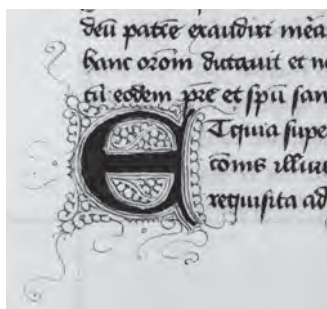 deū patrē exaudiri mea
hanc orōm dictauit et no
cū eodem pr̄e et sp̄u san
E Tquia supe
com̄s illiue
requisita ad